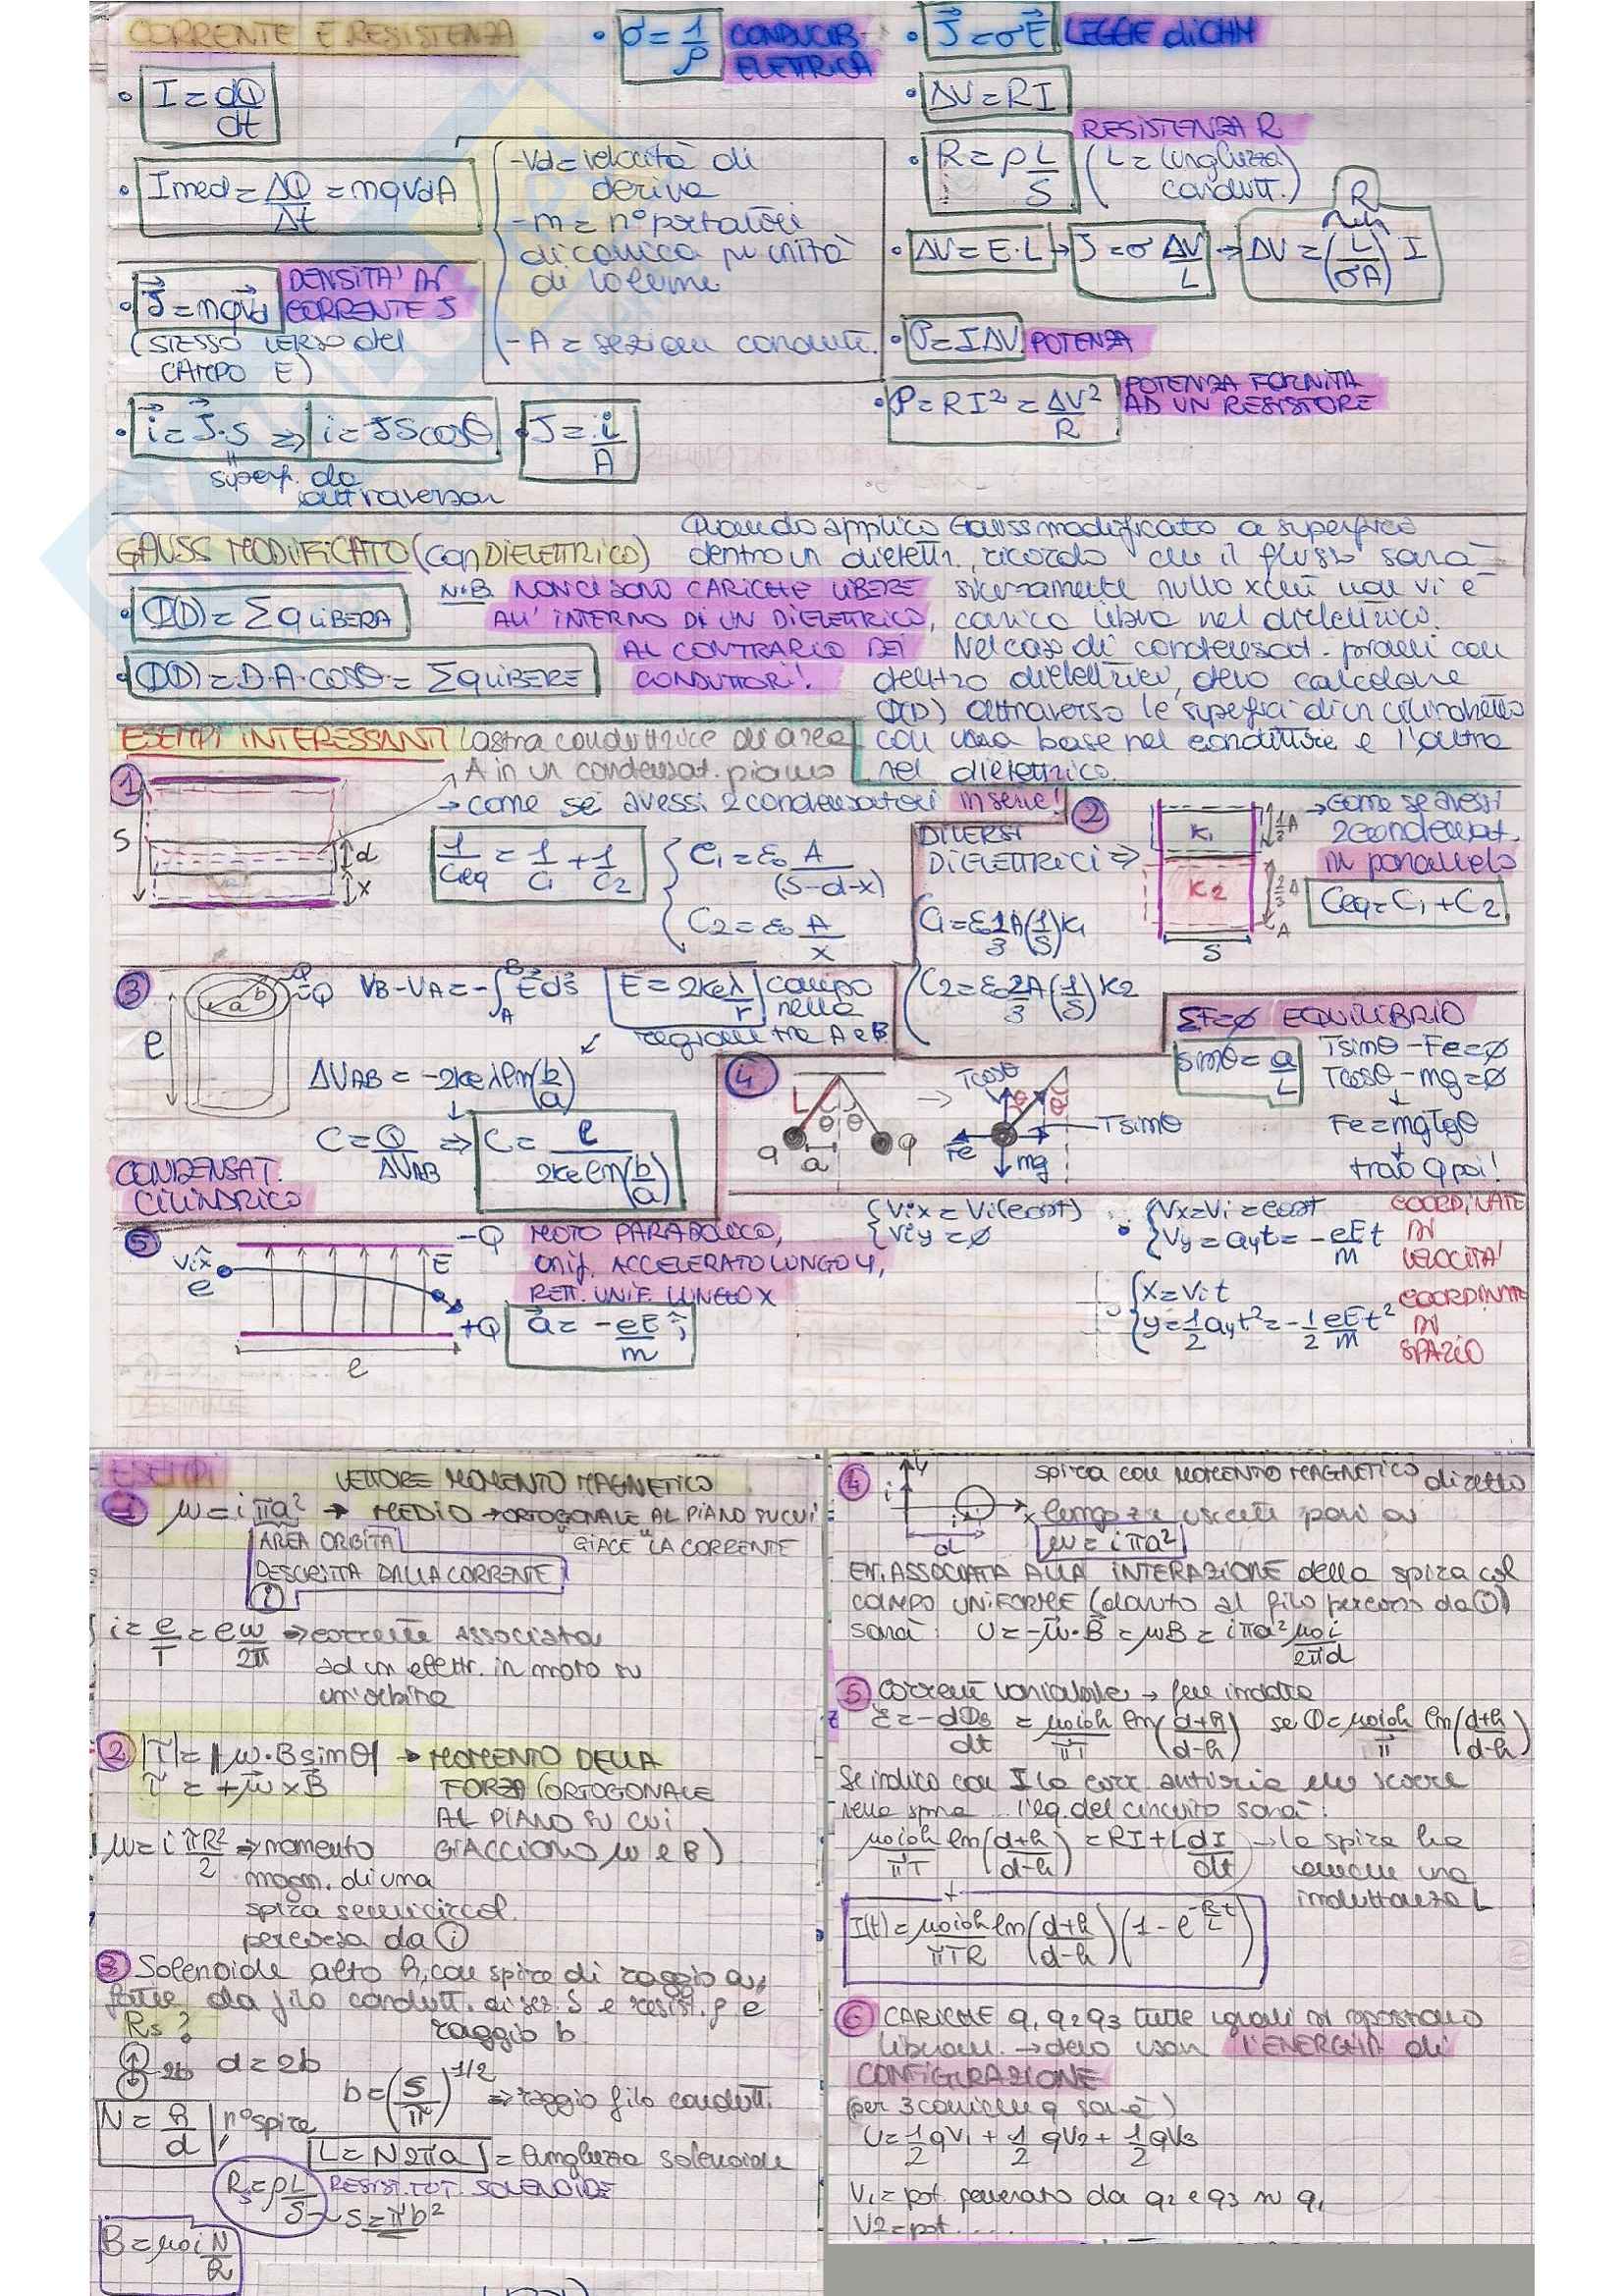 CORRENTE E RESISTENZA
• I = dQ/dt
• Imed = ΔQ/Δt = nqVdA
- Vd = velocità di
deriva
- n = n° portatori
di carica per unità
di volume
- A = sezione condutt.
• J = nqVd DENSITA' DI
CORRENTE J
(STESSO VERSO del
CAMPO E)
• i = J·S ⇒ i = JScosθ
superf. da
attraversare
• J = i/A
• σ = 1/ρ CONDUCIB.
ELETTRICA
• J = σE LEGGE di OHM
• ΔV = RI
RESISTENZA R
• R = ρ L/S (L = lunghezza
condutt.)
• ΔV = E·L → J = σ ΔV/L → ΔV = (L/σA) I
R
• P = IΔV POTENZA
• P = RI² = ΔV²/R POTENZA FORNITA
AD UN RESISTORE
GAUSS MODIFICATO (con DIELETTRICO)
• Φ(D) = Σq LIBERA
• Φ(D) = D·A·cosθ = Σq LIBERE
N.B. NON CI SONO CARICHE LIBERE
ALL'INTERNO DI UN DIELETTRICO,
AL CONTRARIO DEI
CONDUTTORI!
Quando applico Gauss modificato a superfici
dentro un dielettr., ricordo che il flusso sarà
sicuramente nullo xchè non vi è
carica libera nel dielettrico.
Nel caso di condensat. piani con
dentro dielettrici, devo calcolare
Φ(D) attraverso le superfici di un cilindretto
con una base nel conduttore e l'altra
nel dielettrico.
ESEMPI INTERESSANTI
1 lastra conduttrice di area
A in un condensat. piano
→ come se avessi 2 condensatori in serie!
S d x
1/Ceq = 1/C1 + 1/C2
C1 = ε0 A/(S-d-x)
C2 = ε0 A/x
2 DIVERSI
DIELETTRICI ⇒
K1 K2 1/3 A 2/3 A S
→ come se avessi
2 condensat.
in parallelo
Ceq = C1 + C2
C1 = ε0 1/3 A (1/S) K1
C2 = ε0 2/3 A (1/S) K2
3 Q -Q a b l
VB - VA = -∫AB E ds
E = 2keλ/r campo
nella
regione tra A e B
ΔVAB = -2keλ ln(b/a)
C = Q/ΔVAB ⇒ C = l/(2ke ln(b/a))
CONDENSAT.
CILINDRICO
4 L θ θ q a q
→ Tcosθ θ θ Tsinθ Fe mg
ΣF = ∅ EQUILIBRIO
sinθ = a/L
Tsinθ - Fe = ∅
Tcosθ - mg = ∅
Fe = mgtgθ
trovo Q poi!
5 Vi x̂ e -Q E +Q l
MOTO PARABOLICO,
unif. ACCELERATO LUNGO Y,
RETT. UNIF. LUNGO X
a = -eE/m ĵ
Vix = Vi (cost)
Viy = ∅
• Vx = Vi = cost
Vy = ayt = -eE/m t
COORDINATE
DI
VELOCITA'
x = Vit
y = 1/2 ayt² = -1/2 eE/m t²
COORDINATE
DI
SPAZIO
ESEMPI
VETTORE MOMENTO MAGNETICO
1 μ = iπa² → MEDIO → ORTOGONALE AL PIANO SU CUI
"GIACE" LA CORRENTE
AREA ORBITA
DESCRITTA DALLA CORRENTE
i
i = e/T = eω/2π ⇒ corrente ASSOCIATA
ad un elettr. in moto su
un'orbita
2 |τ| = |μ·Bsinθ| → MOMENTO DELLA
τ = +μ x B FORZA (ORTOGONALE
AL PIANO SU CUI
GIACCIONO μ e B)
μ = i πR²/2 ⇒ momento
magn. di una
spira semicircol.
percorsa da i
3 Solenoide alto h, con spire di raggio a,
fatte da filo condutt. di sez. S e resist. ρ e
raggio b
Rs?
2b d = 2b
b = (S/π)^1/2 ⇒ raggio filo condutt.
N = h/d n° spire
L = N2πa = lunghezza solenoide
Rs = ρ L/S RESIST. TOT. SOLENOIDE
S = πb²
B = μ0 i N/h
4 y i x i d
spira con MOMENTO MAGNETICO diretto
lungo z uscente pari a:
μ = iπa²
EN. ASSOCIATA ALLA INTERAZIONE della spira col
CAMPO UNIFORME (dovuto al filo percorso da i)
sarà: U = -μ·B = μB = iπa² μ0i/2πd
5 Corrente variabile → fem indotta
ε = -dΦB/dt = μ0i0h/πT ln(d+h/d-h) se Φ = μ0i0h/π ln(d+h/d-h)
Se indico con I la corr. antioraria che scorre
nella spira... l'eq. del circuito sarà:
μ0i0h/πT ln(d+h/d-h) = RI + L dI/dt → la spira ha
anche una
induttanza L
I(t) = μ0i0h/πTR ln(d+h/d-h) (1 - e^-R/L t)
6 CARICHE q1 q2 q3 tutte uguali si spostano
libere → devo usare l'ENERGIA di
CONFIGURAZIONE
(per 3 cariche q sarà)
U = 1/2 qV1 + 1/2 qV2 + 1/2 qV3
V1 = pot. generato da q2 e q3 su q1
V2 = pot. ....